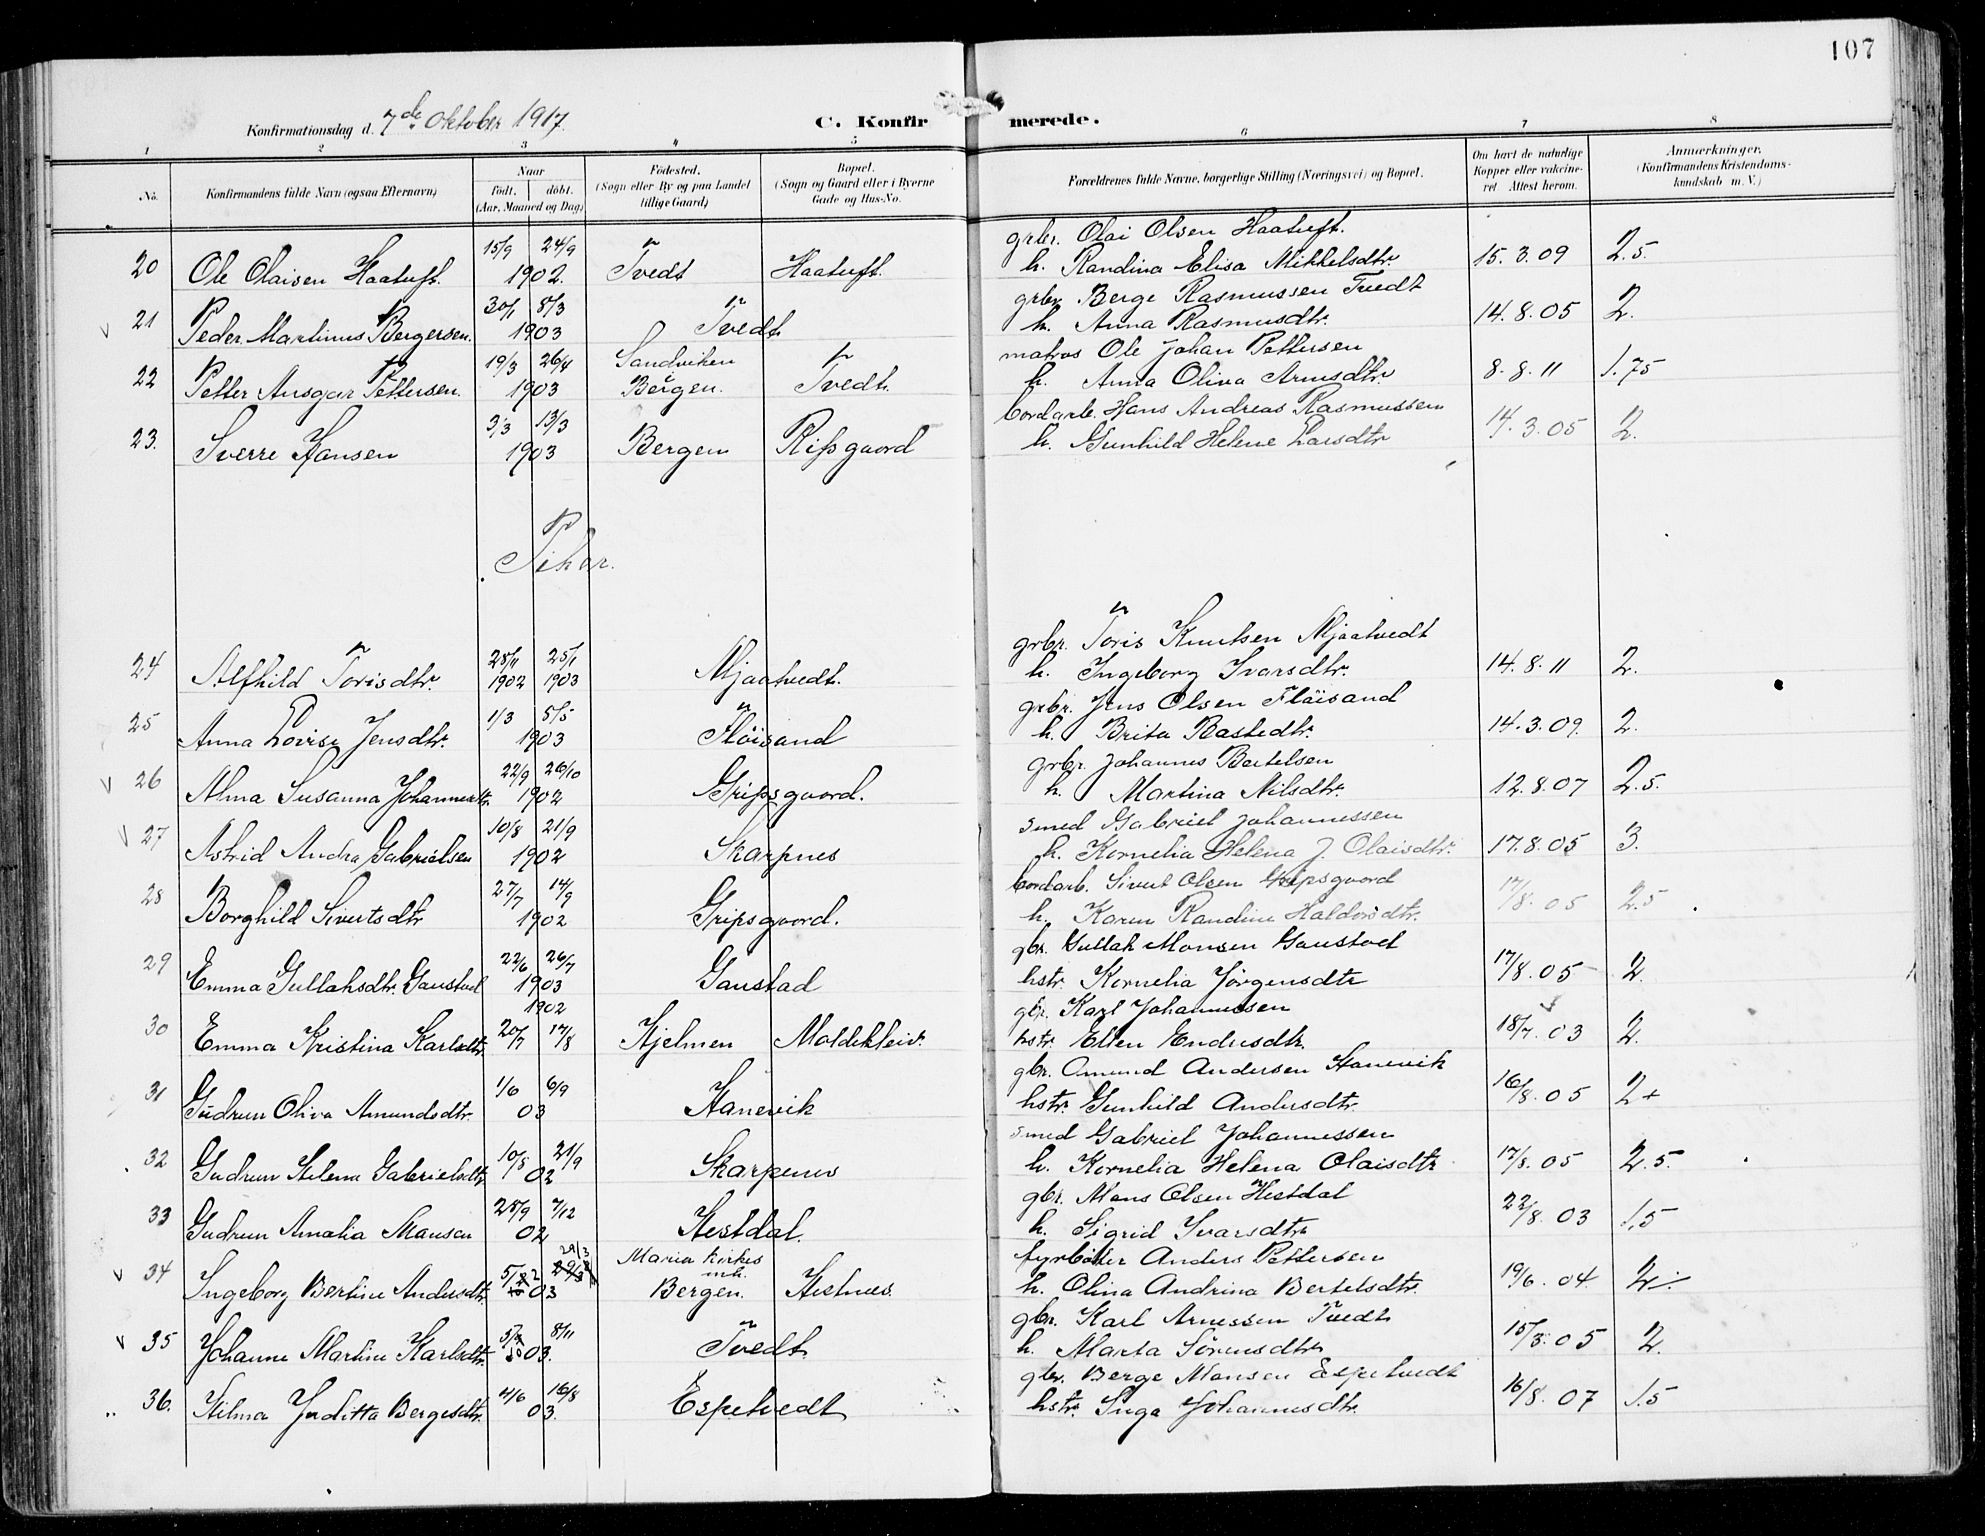 107
Konfirmationsdag d. 7de Oktober 1917.
C. Konfirmerede.
1 2 3 4 5 6 7 8
No. Konfirmandens fulde Navn (ogsaa Efternavn) Naar födt, döbt. (Aar, Maaned og Dag) Födested. (Sogn eller By og paa Landet tillige Gaard) Bopæl. (Sogn og Gaard eller i Byerne Gade og Hus-No. Forældrenes fulde Navne, borgerlige Stilling (Næringsvei) og Bopæl. Om havt de naturlige Kopper eller vakcineret Attest herom. Anmærkninger. (Konfirmandens Kristendomskundskab m. V.)
grbr. Olai Olsen Haatuft.
20 Ole Olaisen Haatuft. 15/9 24/9 1902. Tvedt Haatuft. h. Randina Elisa Mikkelsdtr. 15. 3. 09 2.5.
grbr. Berge Rasmussen Tvedt
21 Peder Martinus Bergersen. 30/1 8/3 1903 Tvedt h. Anna Rasmusdtr. 14. 8. 05 2.
matros Ole Johan Pettersen
22 Petter Ansgar Pettersen. 19/3 26/4 1903 Sandviken Bergen. Tvedt. h. Anna Oliva Arnesdtr. 8. 8. 11 1.75
bordarb. Hans Andreas Rasmussen
23. Sverre Hansen 3/3 13/3 1903 Bergen Ripsgaard h. Gunhild Helene Larsdtr 14. 3. 05 2.
Piker.
grbr. Toris Knutsen Mjaatvedt
24 Alfhild Torisdtr. 28/11 1902 25/1 1903 Mjaatvedt. h. Ingeborg Ivarsdtr. 14. 8. 11 2.
grbr. Jens Olsen Fläisand
25 Anna Lovise Jensdtr. 1/3 5/5 1903 Flöisand h. Brita Rastedtr. 14. 3. 09. 2.
grbr. Johannes Bertelsen
26 Alma Susanna Johannesdtr. 22/9 26/10 1902 Gripsgaard. h. Martina Nilsdtr. 12. 8. 07 2.5.
smed Gabriel Johannessen
27 Astrid Andra Gabrielsen 10/8 21/9 1902 Skarpnes h. Kornelia Helena J. Olaisdtr. 17. 8. 05 3.
bordarb. Sivert Olsen Gripsgaard
28 Borghild Sivertsdtr 27/7 14/9 1902 Gripsgaard. h. Karen Randine Haldorsdtr. 17/8. 05 2.5
gbr. Gullak Monsen Gaustad
29 Emma Gullaksdtr. Gaustad 22/6 26/7 1903 Gaustad hstr. Kornelia Jørgensdtr 17/8. 05 2.
gbr. Karl Johannessen
30 Emma Kristina Karlsdtr. 1902 20/7 17/8 Hjelmen Moldekleiv. hstr. Ellen Endresdtr. 18/7. 03 2.
gbr. Amund Andersen Hanevik
31 Gudrun Oliva Amundsdtr. 1/6 6/9 03 Hanevik hstr. Gunhild Andersdtr. 16/8. 05 2+
smed Gabriel Johannessen
32 Gudrun Helena Gabrielsdtr. 10/8 21/9 02 Skarpenes h. Kornelia Helena Olaisdtr 17/8. 05 2.5.
gbr. Mons Olsen Hestdal
33 Gudrun Amalia Monsen 28/9 7/12 02 Hestdal. h. Sigrid Ivarsdtr 22/8. 03 1.5
fyrböter Anders Pettersen
34 Ingeborg Bertine Andersdtr. 5/2 29/3 03 Maria kirkes mh. Bergen. Hestnes. h. Olina Andrina Bertelsdtr. 19/6. 04 2÷
gbr. Karl Arnessen Tvedt
35 Johanne Martine Karlsdtr. 5/10 8/11 03. Tvedt h. Marta Sörensdtr 15/3. 05 2.
gbr. Berge Monsen Espetvedt
36. Hilma Juditta Bergesdtr. 4/6 16/8 03. Espetvedt hstr. Inga Johannesdtr. 16/8. 07 1.5